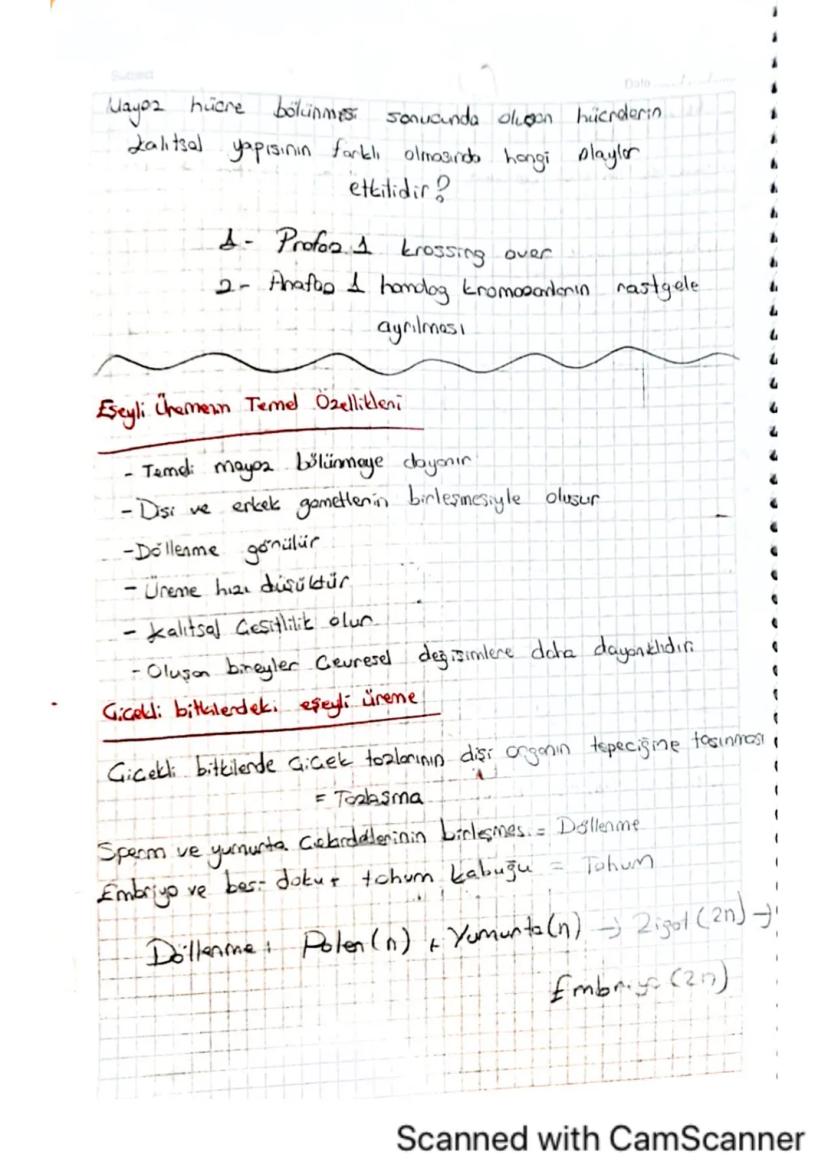 Subject
Date
Mayoz hücre bölünmesi sonucunda oluşan hücrelerin
kalıtsal yapısının farklı olmasında hangi olaylar
etkilidir?
1- Profaz 1 krossing over
2- Anafaz 1 homolog kromozomlarının rastgele
ayrılması
Eşeyli Üremenin Temel Özellikleri
- Temeli mayoz bölünmeye dayanır
- Dişi ve erkek gametlerin birleşmesiyle oluşur
- Döllenme görülür
- Üreme hızı düşüktür
- Kalıtsal Çeşitlilik olur
- Oluşan bireyler Çevresel değişimlere daha dayanıklıdır
Çiçekli bitkilerdeki eşeyli üreme
Çiçekli bitkilerde çiçek tozlarının dişi organın tepeciğine taşınması
= Tozlaşma
Sperm ve yumurta Çekirdeklerinin birleşmesi = Döllenme
Embriyo ve besi doku + tohum kabuğu = Tohum
Döllenme: Polen(n) + Yumurta(n) → Zigot(2n) →
Embriyo(2n)
Scanned with CamScanner